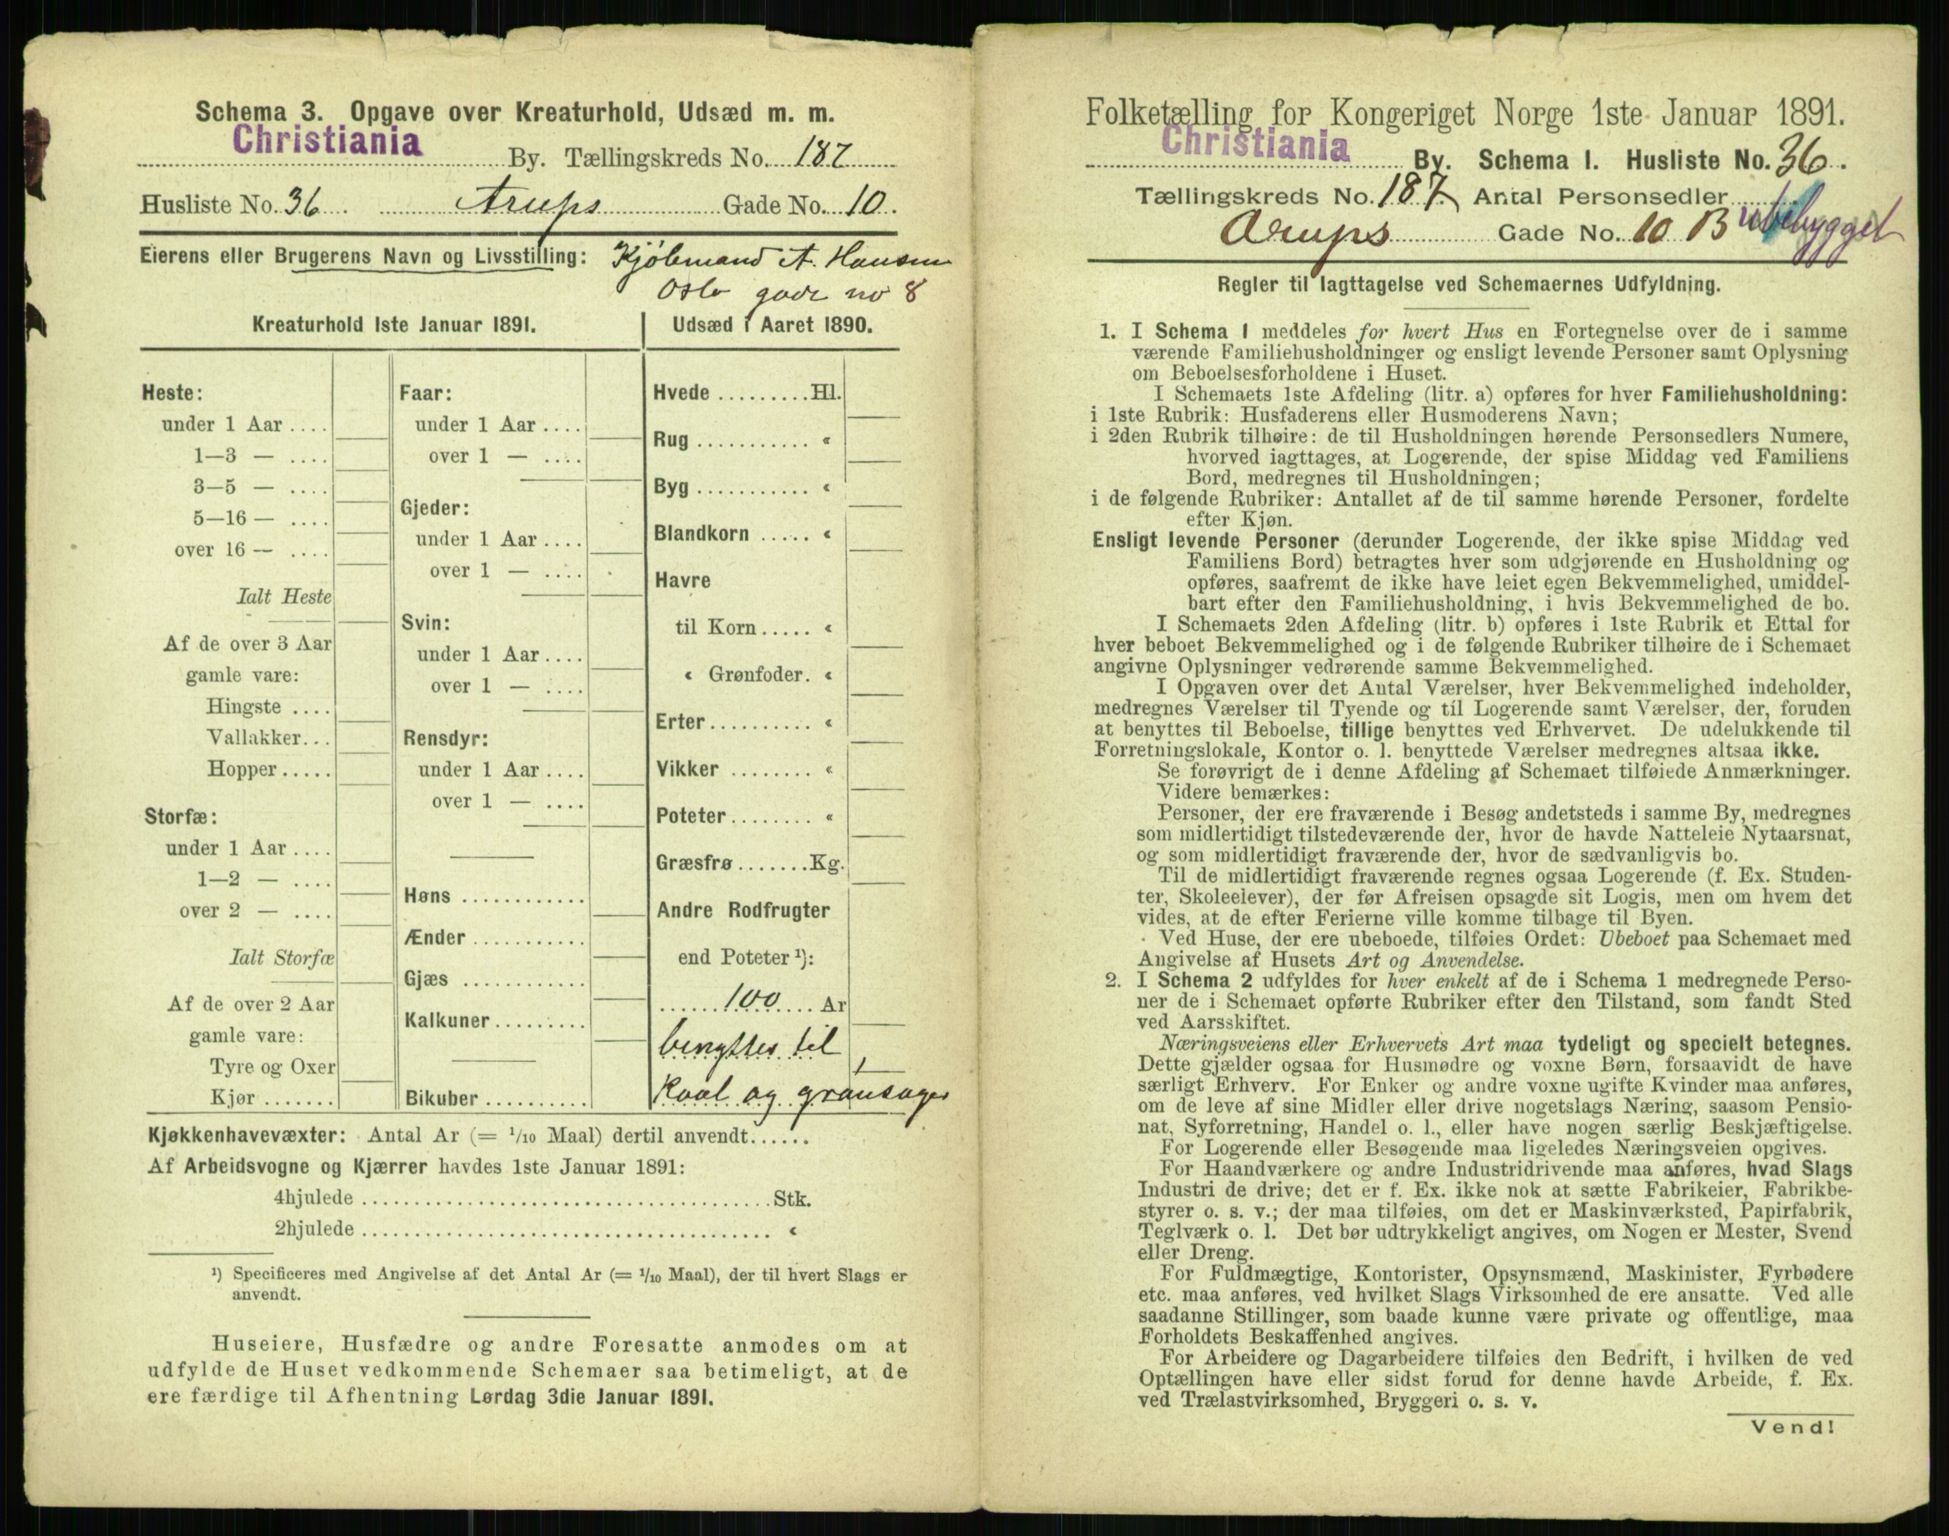 Schema 3. Opgave over Kreaturhold, Udsæd m. m.
Christiania By. Tællingskreds No. 187
Husliste No. 36. Arups Gade No. 10.
Eierens eller Brugerens Navn og Livsstilling: Kjøbmand A. Hansen
Oslo gade no 8
Kreaturhold 1ste Januar 1891.
Heste:
under 1 Aar ....
1—3 — ....
3—5 — ....
5—16 — ....
over 16 — ....
Ialt Heste
Af de over 3 Aar
gamle vare:
Hingste ....
Vallakker...
Hopper.....
Storfæ:
under 1 Aar ....
1—2 — ....
over 2 — ....
Ialt Storfæ
Af de over 2 Aar
gamle vare:
Tyre og Oxer
Kjør .......
Faar:
under 1 Aar ....
over 1 — ....
Gjeder:
under 1 Aar ....
over 1 — ....
Svin:
under 1 Aar ....
over 1 — ....
Rensdyr:
under 1 Aar ....
over 1 — ....
Høns ............
Ænder ...........
Gjæs ............
Kalkuner.........
Bikuber ..........
Udsæd i Aaret 1890.
Hvede .........Hl.
Rug ........... «
Byg ........... «
Blandkorn ..... «
Havre
til Korn ..... «
« Grønfoder. «
Erter.......... «
Vikker ........ «
Poteter........ «
Græsfrø .......Kg.
Andre Rodfrugter
end Poteter ¹):
......100.... Ar
benyttes til
Kaal og grønsager
Kjøkkenhavevæxter: Antal Ar (= 1/10 Maal) dertil anvendt......
Af Arbeidsvogne og Kjærrer havdes 1ste Januar 1891:
4hjulede .......................................Stk.
2hjulede ....................................... «
¹) Specificeres med Angivelse af det Antal Ar (= 1/10 Maal), der til hvert Slags er
anvendt.
Huseiere, Husfædre og andre Foresatte anmodes om at
udfylde de Huset vedkommende Schemaer saa betimeligt, at de
ere færdige til Afhentning Lørdag 3die Januar 1891.
Folketælling for Kongeriget Norge 1ste Januar 1891.
Christiania By. Schema I. Husliste No. 36.
Tællingskreds No. 187. Antal Personsedler
Arups Gade No. 10 B ubebygget
Regler til Iagttagelse ved Schemaernes Udfyldning.
1. I Schema 1 meddeles for hvert Hus en Fortegnelse over de i samme
værende Familiehusholdninger og ensligt levende Personer samt Oplysning
om Beboelsesforholdene i Huset.
I Schemaets 1ste Afdeling (litr. a) opføres for hver Familiehusholdning:
i 1ste Rubrik: Husfaderens eller Husmoderens Navn;
i 2den Rubrik tilhøire: de til Husholdningen hørende Personsedlers Numere,
hvorved iagttages, at Logerende, der spise Middag ved Familiens
Bord, medregnes til Husholdningen;
i de følgende Rubriker: Antallet af de til samme hørende Personer, fordelte
efter Kjøn.
Ensligt levende Personer (derunder Logerende, der ikke spise Middag ved
Familiens Bord) betragtes hver som udgjørende en Husholdning og
opføres, saafremt de ikke have leiet egen Bekvemmelighed, umiddel-
bart efter den Familiehusholdning, i hvis Bekvemmelighed de bo.
I Schemaets 2den Afdeling (litr. b) opføres i 1ste Rubrik et Ettal for
hver beboet Bekvemmelighed og i de følgende Rubriker tilhøire de i Schemaet
angivne Oplysninger vedrørende samme Bekvemmelighed.
I Opgaven over det Antal Værelser, hver Bekvemmelighed indeholder,
medregnes Værelser til Tyende og til Logerende samt Værelser, der, foruden
at benyttes til Beboelse, tillige benyttes ved Erhvervet. De udelukkende til
Forretningslokale, Kontor o. l. benyttede Værelser medregnes altsaa ikke.
Se forøvrigt de i denne Afdeling af Schemaet tilføiede Anmærkninger.
Videre bemærkes:
Personer, der ere fraværende i Besøg andetsteds i samme By, medregnes
som midlertidigt tilstedeværende der, hvor de havde Natteleie Nytaarsnat,
og som midlertidigt fraværende der, hvor de sædvanligvis bo.
Til de midlertidigt fraværende regnes ogsaa Logerende (f. Ex. Studen-
ter, Skoleelever), der før Afreisen opsagde sit Logis, men om hvem det
vides, at de efter Ferierne ville komme tilbage til Byen.
Ved Huse, der ere ubeboede, tilføies Ordet: Ubeboet paa Schemaet med
Angivelse af Husets Art og Anvendelse.
2. I Schema 2 udfyldes for hver enkelt af de i Schema 1 medregnede Perso-
ner de i Schemaet opførte Rubriker efter den Tilstand, som fandt Sted
ved Aarsskiftet.
Næringsveiens eller Erhvervets Art maa tydeligt og specielt betegnes.
Dette gjælder ogsaa for Husmødre og voxne Børn, forsaavidt de have
særligt Erhverv. For Enker og andre voxne ugifte Kvinder maa anføres,
om de leve af sine Midler eller drive nogetslags Næring, saasom Pensio-
nat, Syforretning, Handel o. l., eller have nogen særlig Beskjæftigelse.
For Logerende eller Besøgende maa ligeledes Næringsveien opgives.
For Haandværkere og andre Industridrivende maa anføres, hvad Slags
Industri de drive; det er f. Ex. ikke nok at sætte Fabrikeier, Fabrikbe-
styrer o. s. v.; der maa tilføies, om det er Maskinværksted, Papirfabrik,
Teglværk o. l. Det bør udtrykkeligt angives, om Nogen er Mester, Svend
eller Dreng.
For Fuldmægtige, Kontorister, Opsynsmænd, Maskinister, Fyrbødere
etc. maa anføres, ved hvilket Slags Virksomhed de ere ansatte. Ved alle
saadanne Stillinger, som baade kunne være private og offentlige, maa
Forholdets Beskaffenhed angives.
For Arbeidere og Dagarbeidere tilføies den Bedrift, i hvilken de ved
Optællingen have eller sidst forud for denne havde Arbeide, f. Ex.
ved Trælastvirksomhed, Bryggeri o. s. v.
Vend!